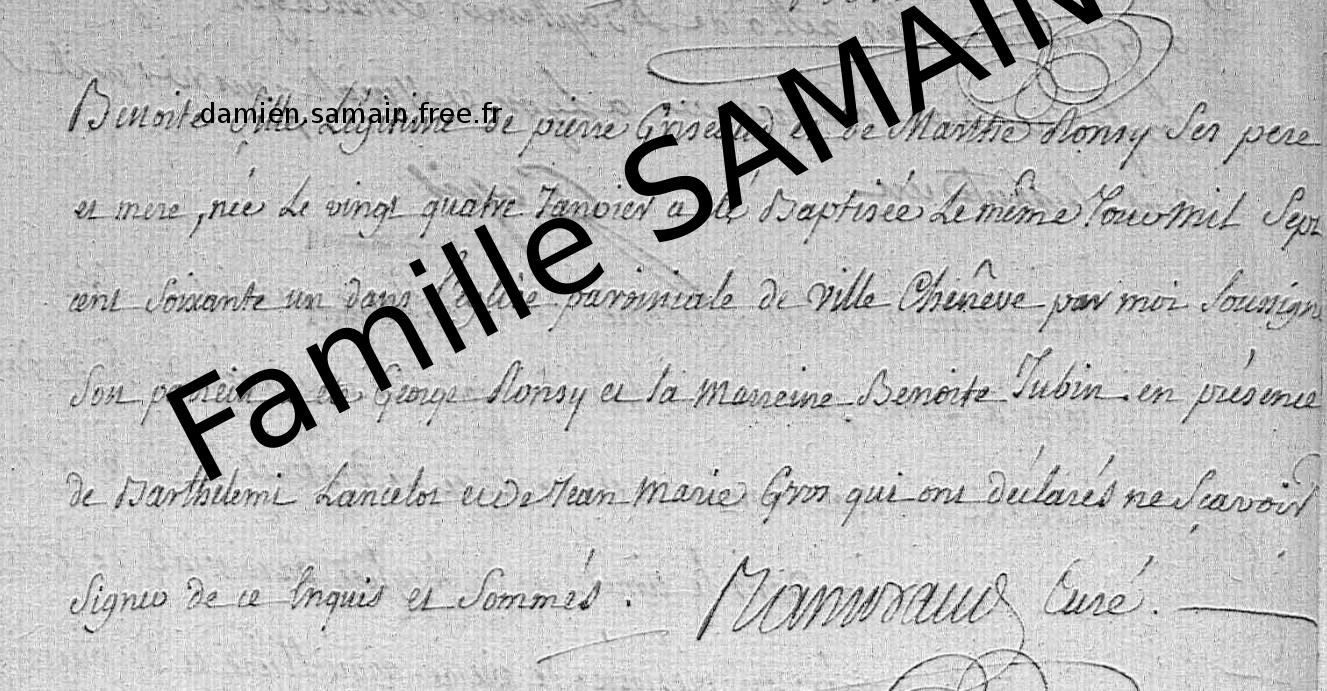 damien.samain.free.fr
Famille SAMAIN
Benoite fille Légitime de pierre et de Marthe Ronsy Ses pere
et mere, née Le vingt quatre Janvier a été Baptisée Le même Jour mil Sept
cent Soixante un dans l'eglise paroissiale de ville Chênêve par moi Soussigné
Son parrein a été George Ronsy et la marreine Benoite Jubin. en présence
de Barthelemi Lancelot et de Jean Marie Gros qui ont déclarés ne Scavoir
Signer de ce Enquis et Sommés. Curé.